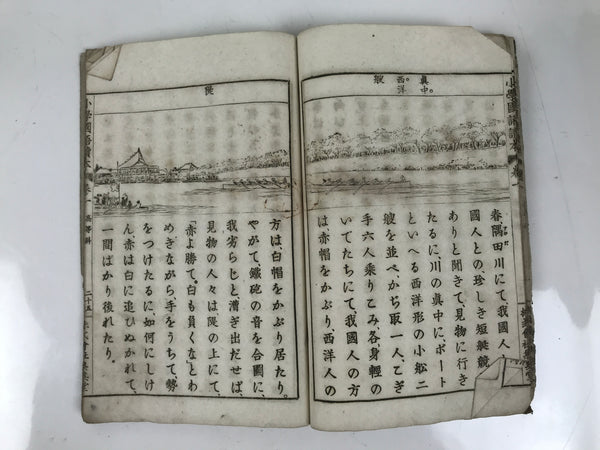 小學國語讀本
眞中。
西洋。
艘
春、隅田川にて、我國人と
國人との、珍しき短艇競
ありと聞きて、見物に行き
たるに、川の眞中に、ボート
といへる西洋形の小舩二
艘を並べ、かぢ取一人、こぎ
手六人乘りこみ、各身輕の
いでたちにて、我國人の方
は赤帽をかぶり、西洋人の
堤
方は、白帽をかぶり居たり。
やがて、鐵砲の音を合圖に、
我劣らじと、漕ぎ出だせば、
見物の人々は、堤の上にて、
「赤よ勝て。白も負くな」とわ
めきながら、手をうちて、勢
をつけたるに、如何にしけ
ん、赤は白に追ひぬかれて、
一間ばかり後れたり。
小學國語讀本
高等科
二十五